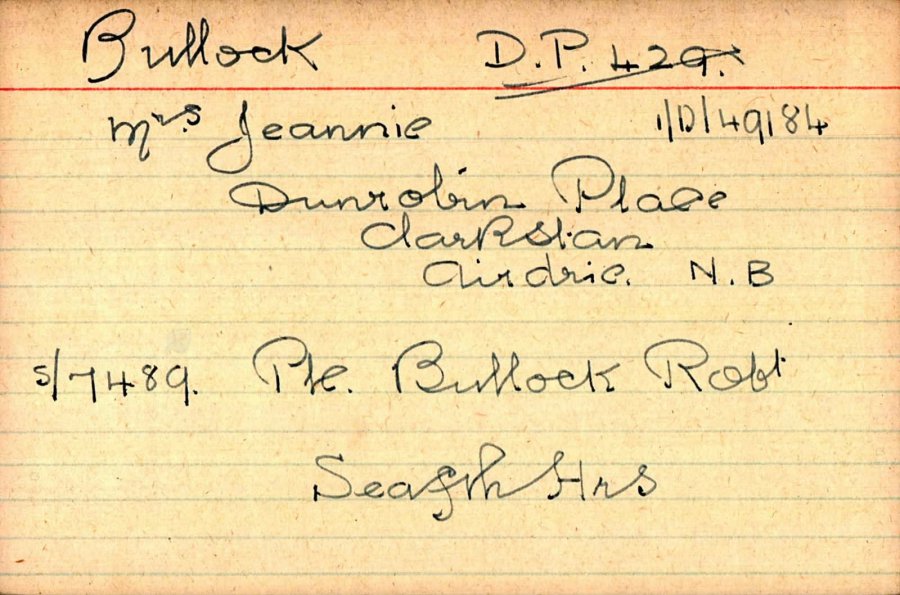 Bullock D.P. 429.
Mrs Jeannie 1/D/49184
Dunrobin Place
Clarkstan
Airdrie. N.B
S/7489. Pte. Bullock Robt
Seafth Hrs